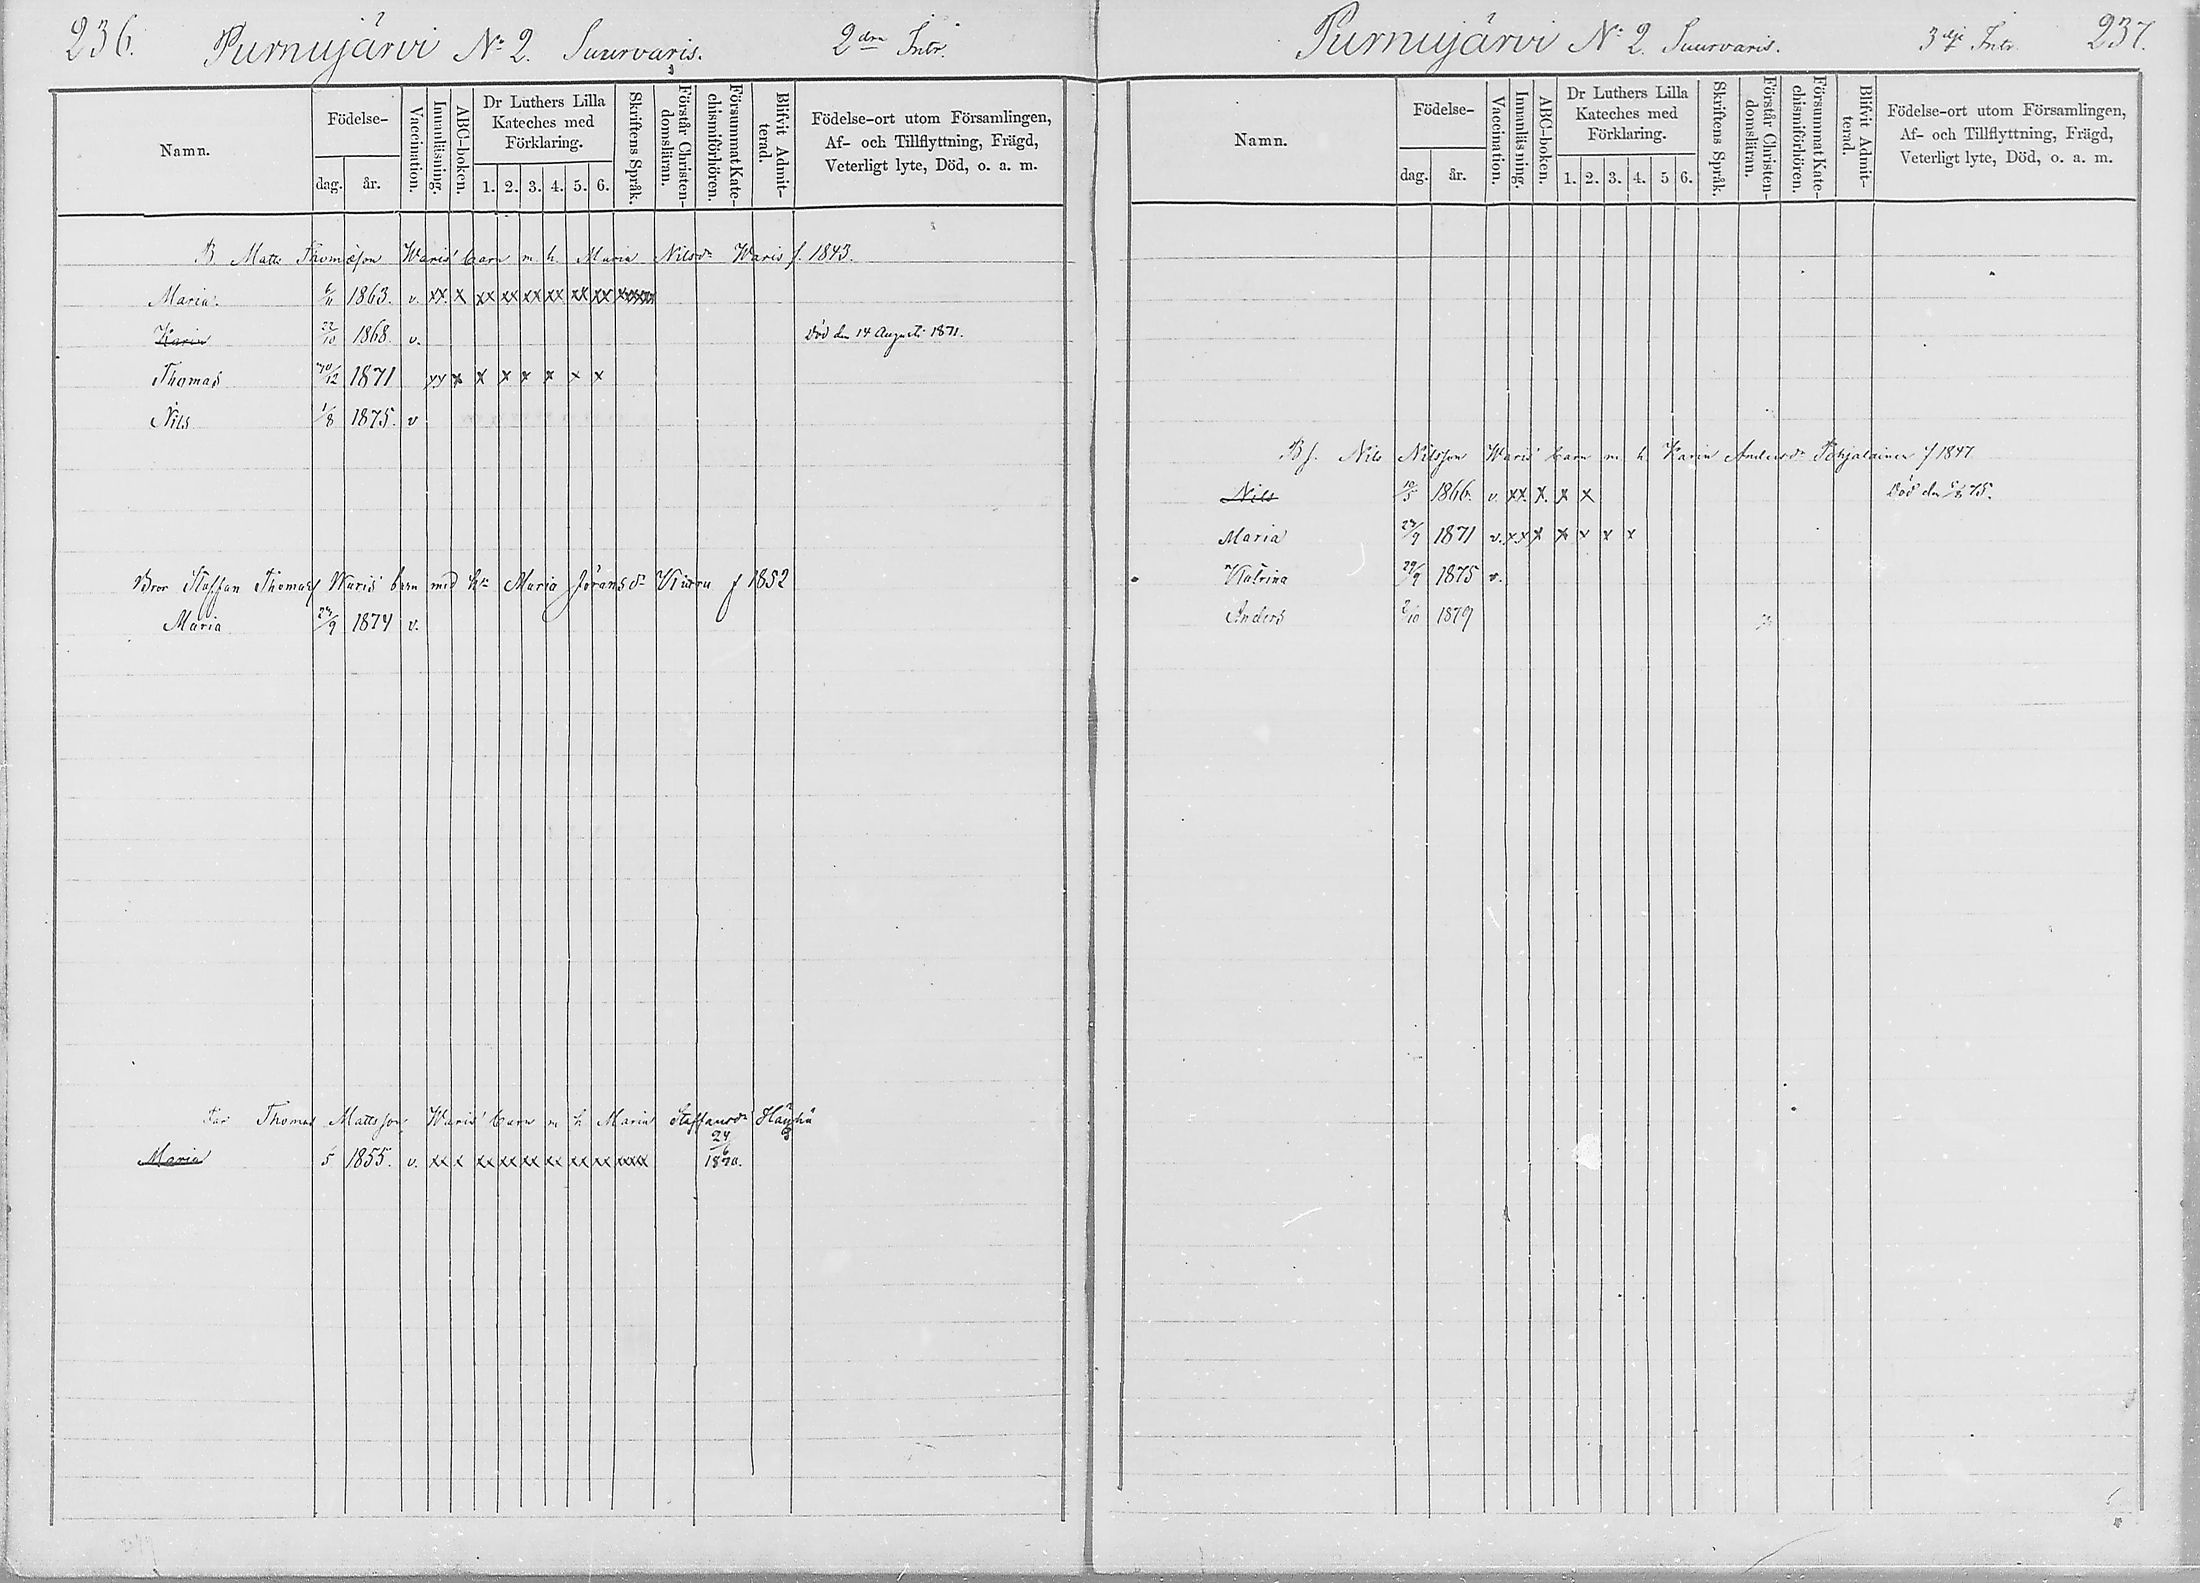 236. Purnujärvi No 2. Suurvaris. 2dra Intr.
Namn. Födelse- dag. år. Vaccination. Innanläsning. ABC-boken. Dr Luthers Lilla Kateches med Förklaring. 1. 2. 3. 4. 5. 6. Skriftens Språk. Förstår Christen-domsläran. Försummat Kate-chismiförhören. Blifvit Admit-terad. Födelse-ort utom Församlingen, Af- och Tillflyttning, Frägd, Veterligt lyte, Död, o. a. m.
B. Matts Thomasson Waris' barn m. h. Maria Nilsdr Waris f. 1843.
Maria. 6/11 1863. v. xx x xx xx xx xx xx xx xxxxx
Karin 22/10 1868 v. Död den 14 Augusti 1871.
Thomas /12 1871 xx x x x x x x x
Nils 1/8 1875. v
Bror Staffan Thomass Waris' barn med hu Maria Jöransdr Kiuru f 1852
Maria 24/9 1874 v.
Far Thomas Mattsson Waris' barn m h Maria Staffansdr
24
Maria 5 1855. v. xx x xx xx xx xx xx xx xxxx 1870.
Purnujärvi No 2. Suurvaris. 3dje Intr. 237.
Namn. Födelse- dag. år. Vaccination. Innanläsning. ABC-boken. Dr Luthers Lilla Kateches med Förklaring. 1. 2. 3. 4. 5 6. Skriftens Språk. Förstår Christen-domsläran. Försummat Kate-chismiförhören. Blifvit Admit-terad. Födelse-ort utom Församlingen, Af- och Tillflyttning, Frägd, Veterligt lyte, Död, o. a. m.
Bf. Nils Nilsson Waris' barn m. h. Karin Andersdr Pohjalainen f 1847
Nils 10/5 1866. v. xx. x. x x Död den 5/8 75.
Maria 24/9 1871 v. xx x x v x x
Katrina 29/9 1875 v.
Anders 2/10 1879